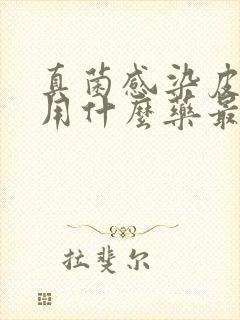 真菌感染皮
用什麼藥最
拉斐尔